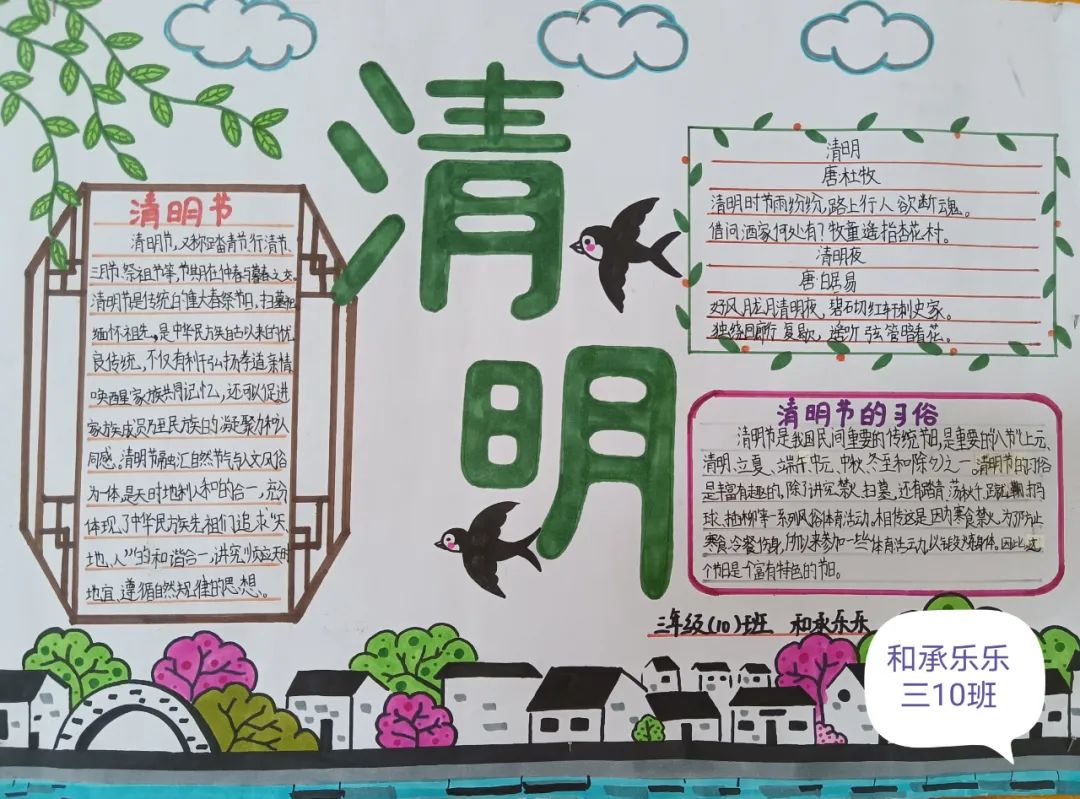 清明
清明节
清明节,又称踏青节、行清节、
三月节、祭祖节等,节期在仲春与暮春之交。
清明节是传统的重大春祭节日,扫墓祀
缅怀祖先,是中华民族自古以来的优
良传统,不仅有利于弘扬孝道亲情
唤醒家族共同记忆,还可促进
家族成员乃至民族的凝聚力和认
同感。清明节融汇自然节气与人文风俗
为一体,是天时地利人和的合一,充分
体现了中华民族先祖们追求“天
地、人”的和谐合一,讲究顺应天时
地宜、遵循自然规律的思想。
清明
唐·杜牧
清明时节雨纷纷,路上行人欲断魂。
借问酒家何处有?牧童遥指杏花村。
清明夜
唐·白居易
好风胧月清明夜,碧石切红轩刺史家。
独绕回廊行复歇,遥听弦管暗看花。
清明节的习俗
清明节是我国民间重要的传统节日,是重要的“八节”上元、
清明、立夏、端午、中元、中秋、冬至和除夕)之一。清明节的习俗
是丰富有趣的,除了讲究禁火、扫墓,还有踏青、荡秋千、蹴鞠、打马
球、插柳等一系列风俗体育活动。相传这是因为寒食禁火,为了防止
寒食冷餐伤身,所以来参加一些体育活动,以锻炼身体。因此,这
个节日是个富有特色的节日。
三年级(10)班 和承乐乐
和承乐乐
三10班